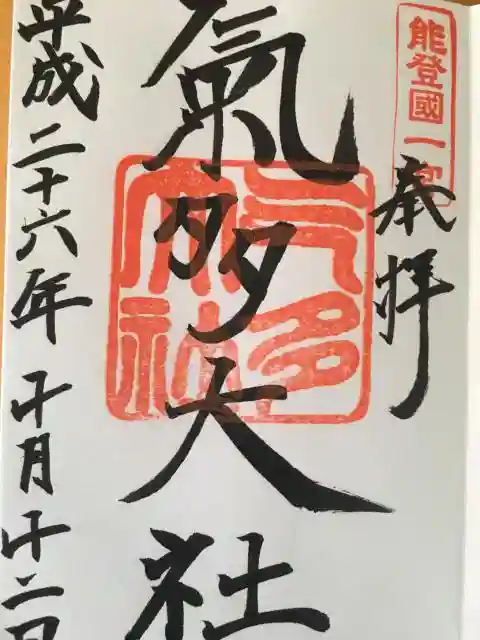 能登國一宮
奉拝
氣多大社
氣多大社
平成二十六年十月十二日